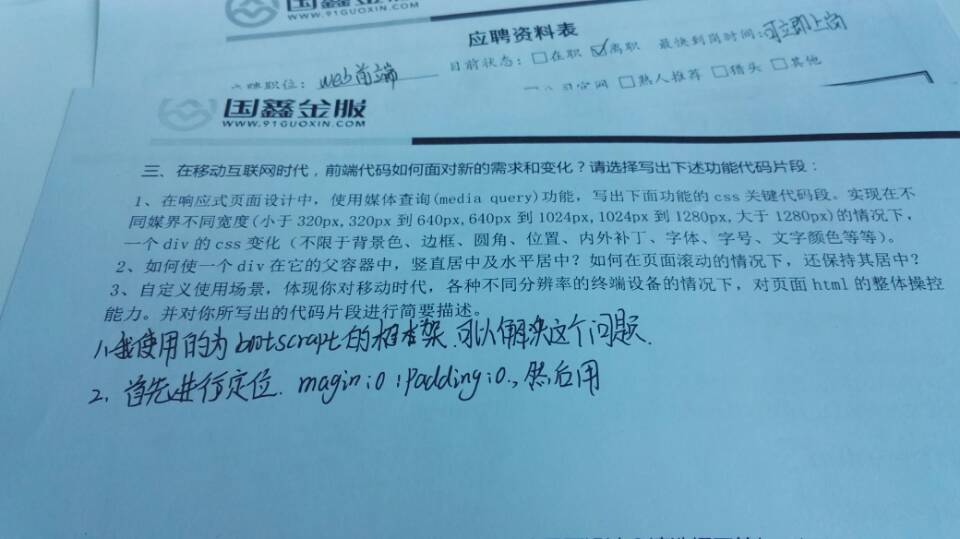 国鑫金服
WWW.91GUOXIN.COM
应聘资料表
职位：web前端
目前状态：□在职 ☑离职 最快到岗时间：可立即上岗
□熟人推荐 □猎头 □其他
国鑫金服
WWW.91GUOXIN.COM
三、在移动互联网时代，前端代码如何面对新的需求和变化？请选择写出下述功能代码片段：
1、在响应式页面设计中，使用媒体查询(media query)功能，写出下面功能的css关键代码段。实现在不
同媒界不同宽度(小于320px,320px到640px,640px到1024px,1024px到1280px,大于1280px)的情况下，
一个div的css变化（不限于背景色、边框、圆角、位置、内外补丁、字体、字号、文字颜色等等）。
2、如何使一个div在它的父容器中，竖直居中及水平居中？如何在页面滚动的情况下，还保持其居中？
3、自定义使用场景，体现你对移动时代，各种不同分辨率的终端设备的情况下，对页面html的整体操控
能力。并对你所写出的代码片段进行简要描述。
1、我使用的为bootscrapt的框架.可以解决这个问题.
2、首先进行定位.magin:0;padding:0.,然后用